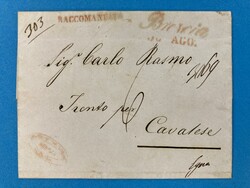 303
RACCOMANDATA
Brescia
AGO.
Sig.r Carlo Rasmo
Trento per
Cavalese
Egna